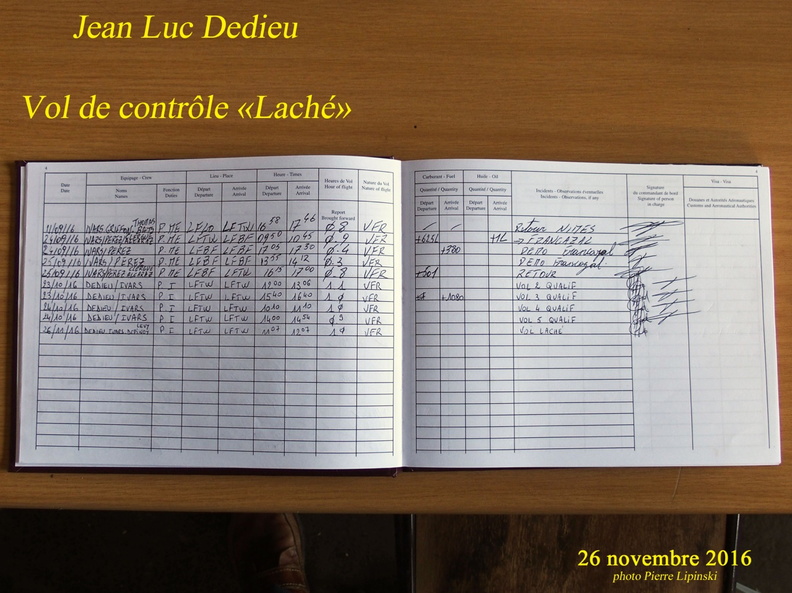 Jean Luc Dedieu
Vol de contrôle «Laché»
4
Date
Date
Equipage - Crew
Noms
Names
Fonction
Duties
Lieu - Place
Départ
Departure
Arrivée
Arrival
Heure - Times
Départ
Departure
Arrivée
Arrival
Heures de Vol
Hour of flight
Report
Brought forward
Nature du Vol
Nature of flight
11/09/16 P. ME LFLO LFTW 16 58 17 46 0.8 VFR
24/09/16 P. ME LFTW LFBF 09 50 10 45 0.9 VFR
24/09/16 WARS/PEREZ P. ME LFBF LFBF 17 05 17 30 0.4 VFR
25/09/16 WARS/PEREZ P. ME LFBF LFBF 13 55 14 12 0.3 VFR
25/09/16 P. ME LFBF LFTW 16 15 17 00 0.8 VFR
23/10/16 DEDIEU/IVARS P I LFTW LFTW 12 00 13 06 1 1 VFR
23/10/16 DEDIEU/IVARS P. I LFTW LFTW 15 40 16 40 1 0 VFR
24/10/16 DEDIEU/IVARS P I LFTW LFTW 10 10 11 10 1 0 VFR
24/10/16 DEDIEU/IVARS P. I LFTW LFTW 14 00 14 54 0 9 VFR
26/11/16 DEDIEU P I LFTW LFTW 11 07 12 07 1 0 VFR
Carburant - Fuel
Quantité / Quantity
Départ
Departure
Arrivée
Arrival
Huile - Oil
Quantité / Quantity
Départ
Departure
Arrivée
Arrival
Incidents - Observations éventuelles
Incidents - Observations, if any
Signature
du commandant de bord
Signature of person
in charge
Visa - Visa
Douanes et Autorités Aéronautiques
Customs and Aeronautical Authorities
Retour NIMES
+625L +1L → FRANCAZAL
+380 DEMO Francazal
DEMO Francazal
+601 RETOUR
VOL 2 QUALIF
+1080 VOL 3 QUALIF
VOL 4 QUALIF
VOL 5 QUALIF
VOL LACHÉ
26 novembre 2016
photo Pierre Lipinski